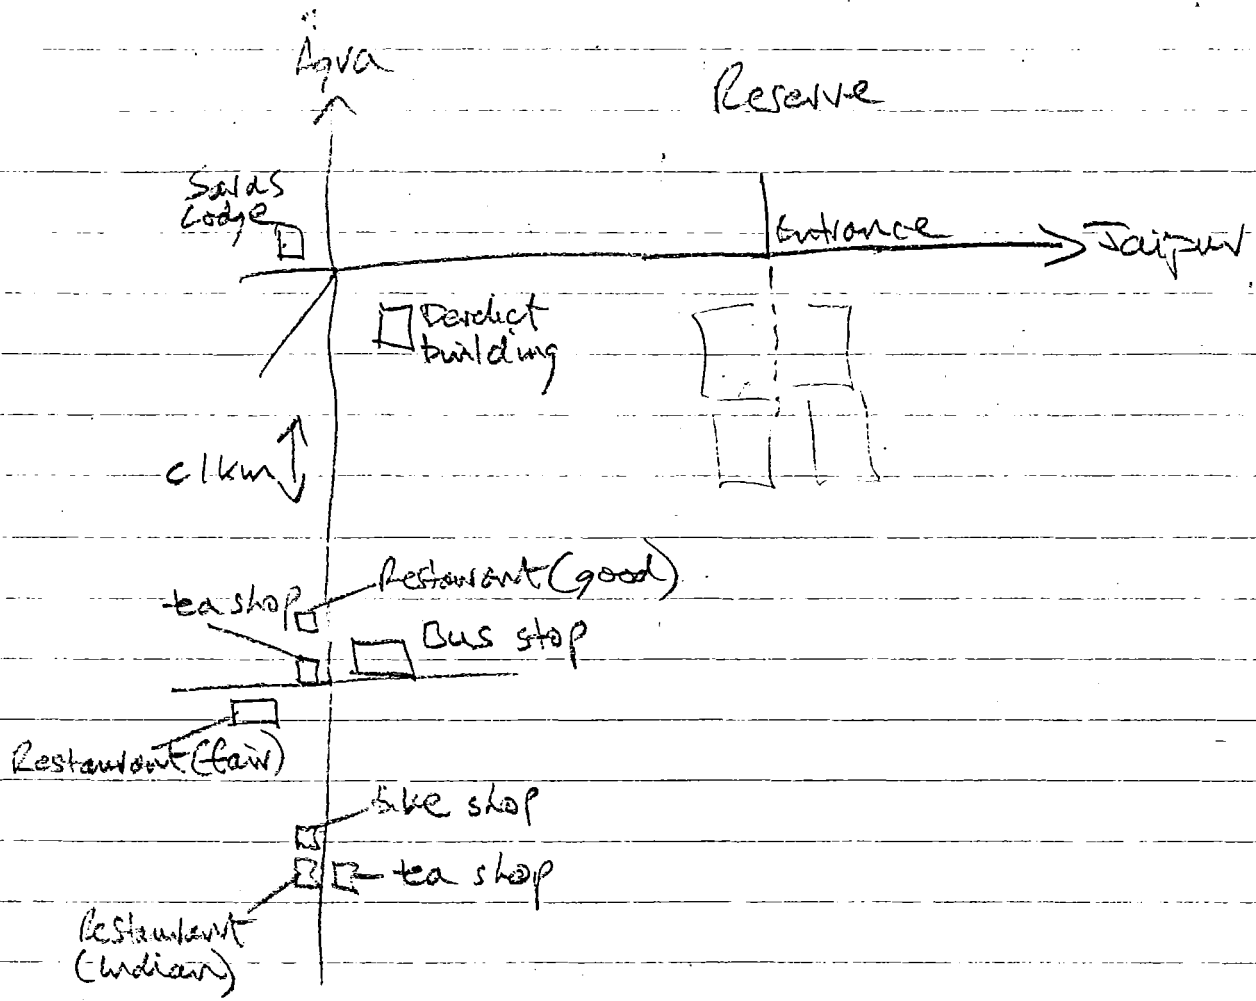 Agra
Reserve
Saras
Lodge
Entrance
Jaipur
Derelict
building
c1km
Restaurant (good)
tea shop
Bus stop
Restaurant (fair)
bike shop
tea shop
Restaurant
(Indian)